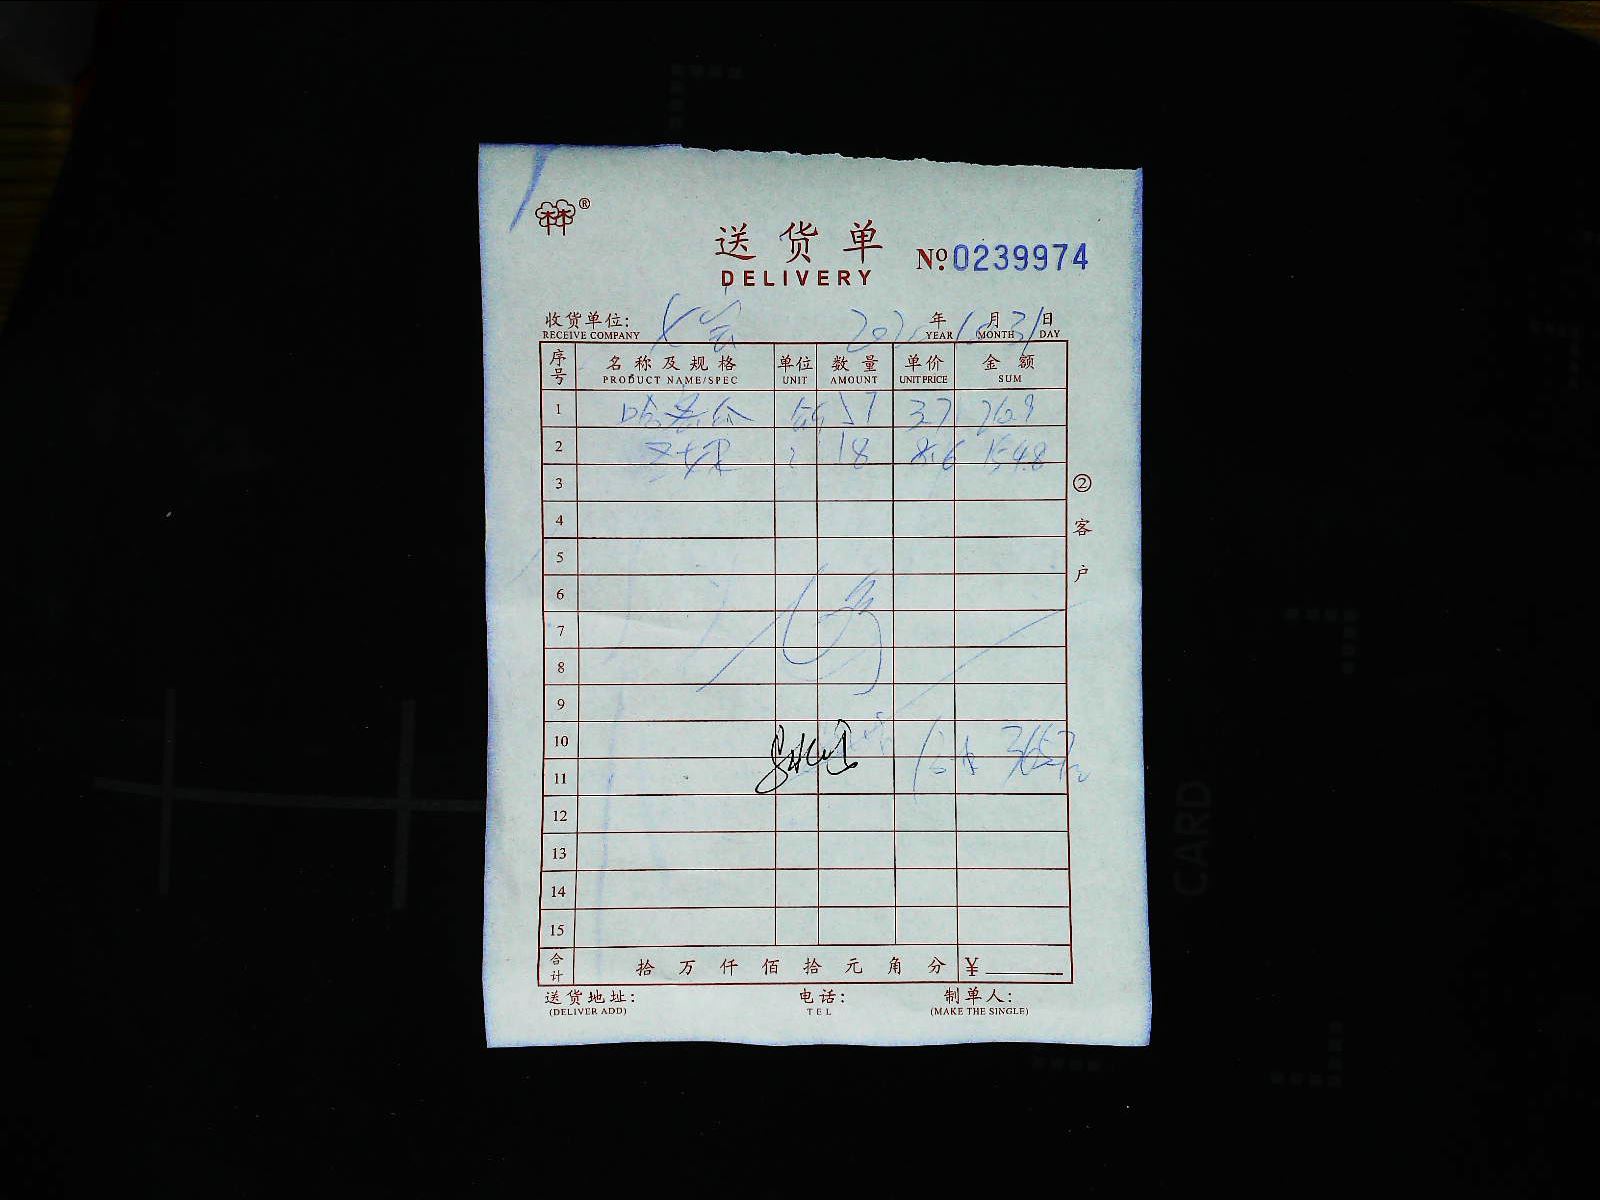 ®
送货单
DELIVERY
No. 0239974
收货单位: 年 月 31 日
RECEIVE COMPANY YEAR MONTH DAY
序号 名称及规格 单位 数量 单价 金额
PRODUCT NAME/SPEC UNIT AMOUNT UNIT PRICE SUM
1 3.7
2 18 8.6 154.8
3
4
5
6
7
8
9
10
11
12
13
14
15
② 客户
合计 拾 万 仟 佰 拾 元 角 分 ¥
送货地址: 电话: 制单人:
(DELIVER ADD) TEL (MAKE THE SINGLE)
CARD